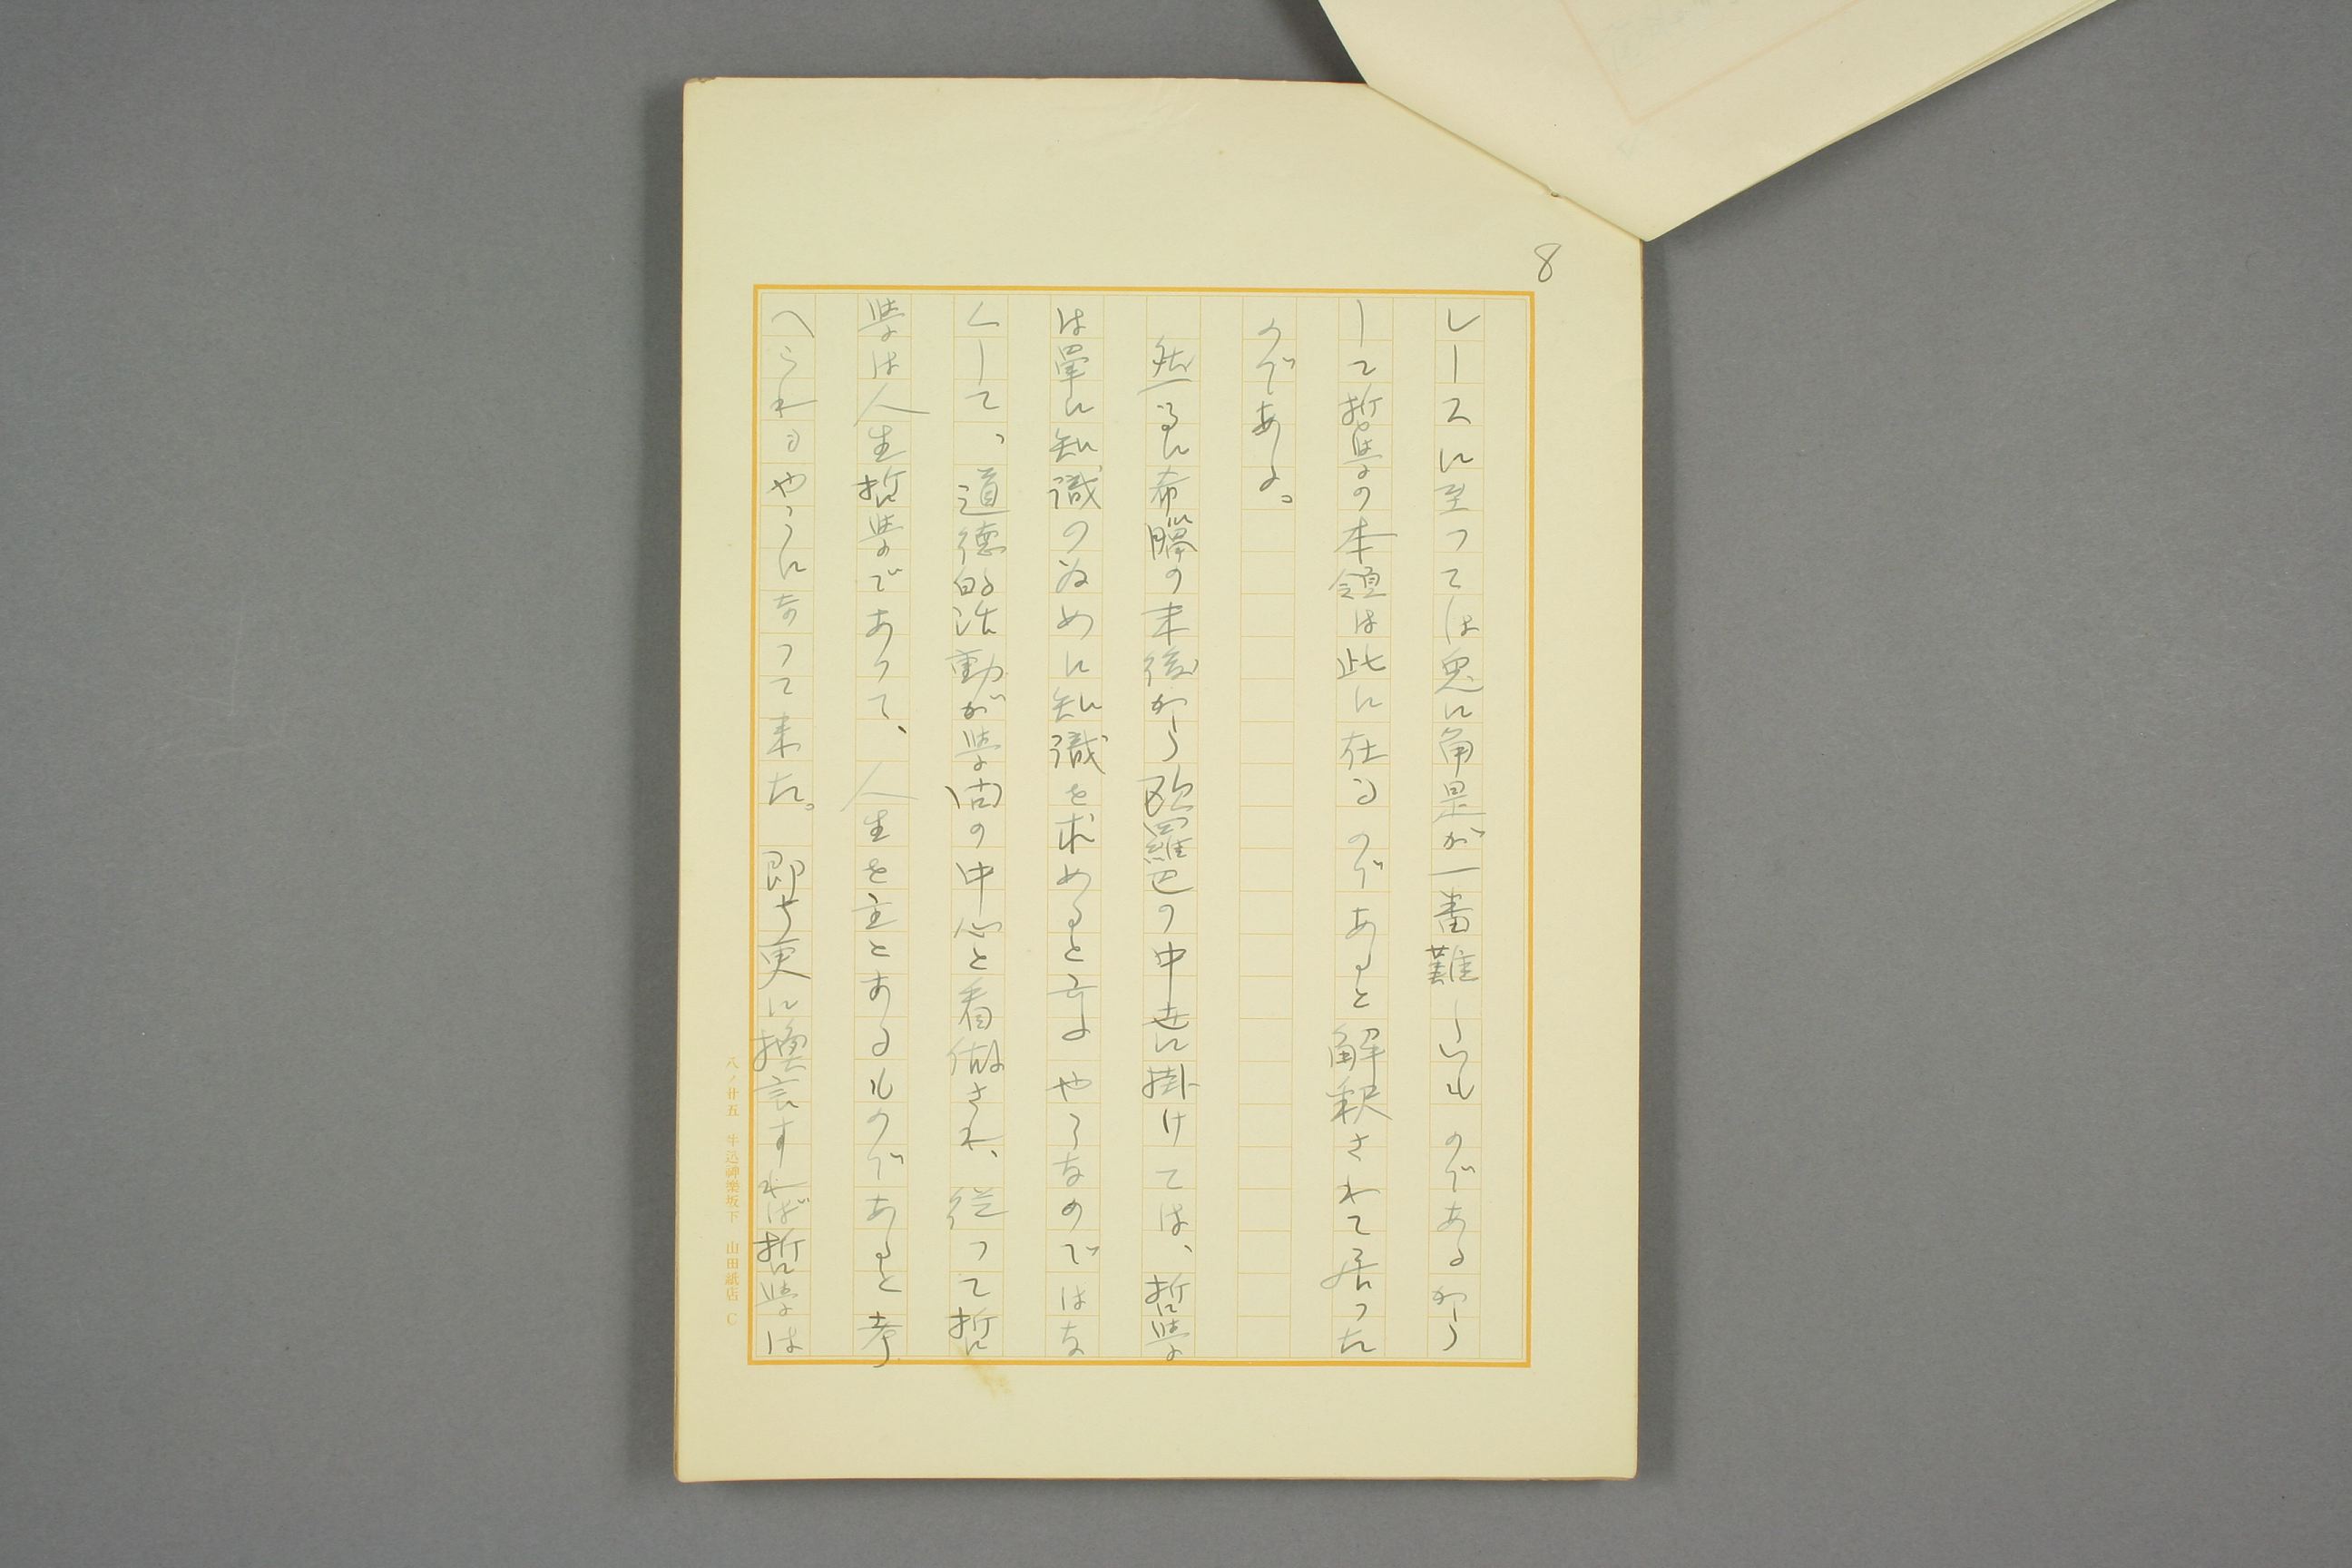 8
レースに至っては兎に角是が一番難しいものであるから
して哲學の本領は此に在るのであると解釈されて居った
のである。
然るに希臘の末後から欧羅巴の中世に掛けては、哲學
は單に知識のために知識を求めると云ふやうなのではな
くして、道徳的活動が學問の中心と看做され、従って哲
學は人生哲學であって、人生を主とあるものであると考
へられるやうになって来た。即ち更に換言すれば哲學は
八ノ廿五 牛込神樂坂下 山田紙店 C